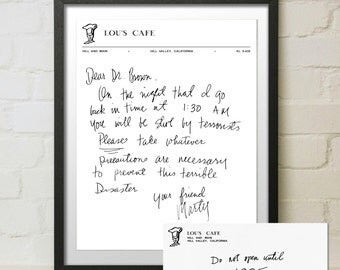 LOU'S CAFE
HILL AND MAIN HILL VALLEY, CALIFORNIA
Dear Dr. Brown,
On the night that I go
back in time at 1:30 AM
you will be shot by terrorists
Please take whatever
precautions are necessary
to prevent this terrible
Disaster
Your friend
Marty
LOU'S CAFE
HILL AND MAIN
HILL VALLEY, CALIFORNIA
Do not open until